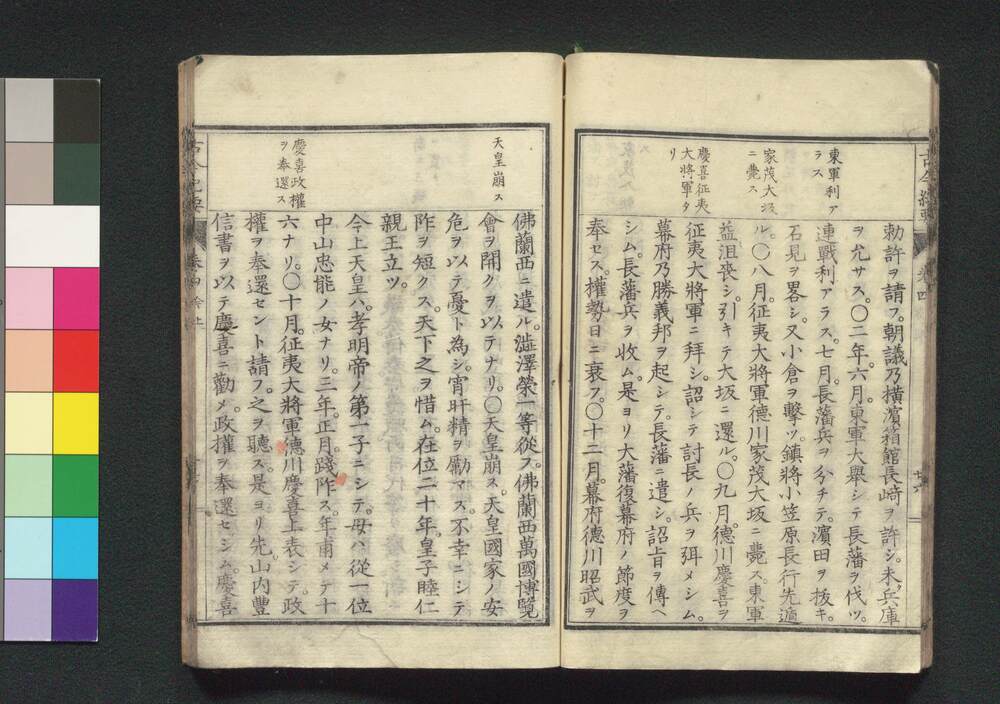 東軍利ア
ラス
家茂大坂
ニ薨ス
慶喜征夷
大將軍タ
リ
勅許ヲ請フ。朝議乃橫濱箱館長﨑ヲ許シ。未兵庫
ヲ允サス。〇二年。六月。東軍大舉シテ長藩ヲ伐ツ。
連戰利アラス。七月。長藩兵ヲ分チテ。濱田ヲ拔キ。
石見ヲ畧シ。又小倉ヲ擊ツ。鎮將小笠原長行先遁
ル。〇八月。征夷大將軍德川家茂大坂ニ薨ス。東軍
益沮喪シ。引キテ大坂ニ還ル。〇九月。德川慶喜ヲ
征夷大將軍ニ拜シ。詔シテ討長ノ兵ヲ弭メシム。
幕府乃勝義邦ヲ起シテ。長藩ニ遣シ。詔旨ヲ傳ヘ
シム。長藩兵ヲ收ム。是ヨリ大藩復幕府ノ節度ヲ
奉セス。權勢日ニ衰フ。〇十二月。幕府德川昭武ヲ
天皇崩ス
慶喜政權
ヲ奉還ス
佛蘭西ニ遣ル。澁澤榮一等從フ。佛蘭西萬國博覽
會ヲ開クヲ以テナリ。〇天皇崩ス。天皇國家ノ安
危ヲ以テ憂ト為シ。宵旰精ヲ勵マス。不幸ニシテ
阼ヲ短クス。天下之ヲ惜ム。在位二十年。皇子睦仁
親王立ツ。
今上天皇ハ。孝明帝ノ第一子ニシテ。母ハ從一位
中山忠能ノ女ナリ。三年。正月。踐阼ス。年甫メテ十
六ナリ。〇十月。征夷大將軍德川慶喜上表シテ。政
權ヲ奉還セント請フ。之ヲ聽ス。是ヨリ先。山内豐
信書ヲ以テ慶喜ニ勸メ。政權ヲ奉還セシム。慶喜